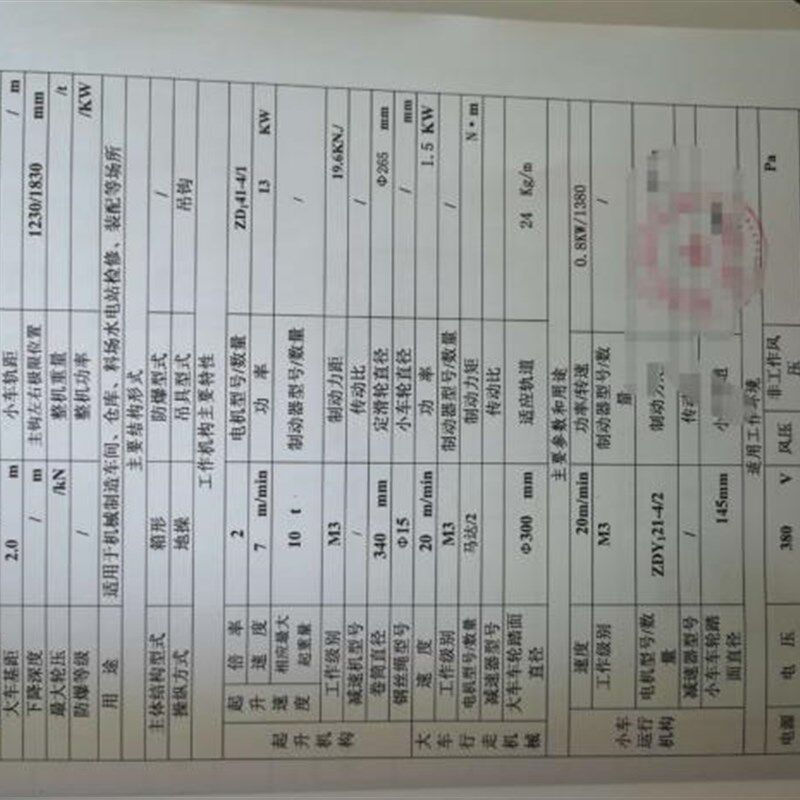 大车基距 2.0 m 小车轨距 / m
下降深度 / m 主钩左右极限位置 1230/1830 mm
最大轮压 /kN 整机重量 /t
防爆等级 / 整机功率 /KW
用 途 适用于机械制造车间、仓库、料场水电站检修、装配等场所
主要结构形式
主体结构型式 箱形 防爆型式 /
操纵方式 地操 吊具型式 吊钩
工作机构主要特性
起升机构 起升速度 倍 率 2 电机型号/数量 ZD₁41-4/1
速 度 7 m/min 功 率 13 KW
相应最大起重量 10 t 制动器型号/数量 /
工作级别 M3 制动力距 19.6KN./
减速机型号 / 传动比 /
卷筒直径 340 mm 定滑轮直径 Φ265 mm
钢丝绳型号 Φ15 小车轮直径 / mm
大车行走机械 速 度 20 m/min 功 率 1.5 KW
工作级别 M3 制动器型号/数量 /
电机型号/数量 马达/2 制动力矩 N·m
减速器型号 传动比
大车车轮踏面直径 Φ300 mm 适应轨道 24 Kg/m
主要参数和用途
小车运行机构 速度 20m/min 功率/转速 0.8KW/1380
工作级别 M3 制动器型号/数量 /
电机型号/数量 ZDY₁21-4/2 制动力
减速器型号 / 传
小车车轮踏面直径 145mm 小 道
适用工作环境
电源 电 压 380 V 风压 非工作风压 Pa